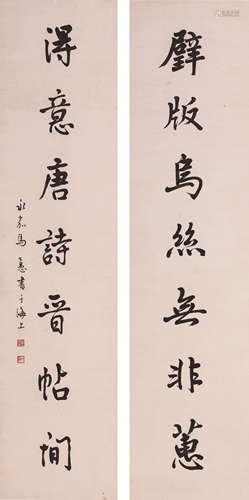 版烏絲無非蕙
得意唐詩晉帖間
永嘉馬公愚書于海上